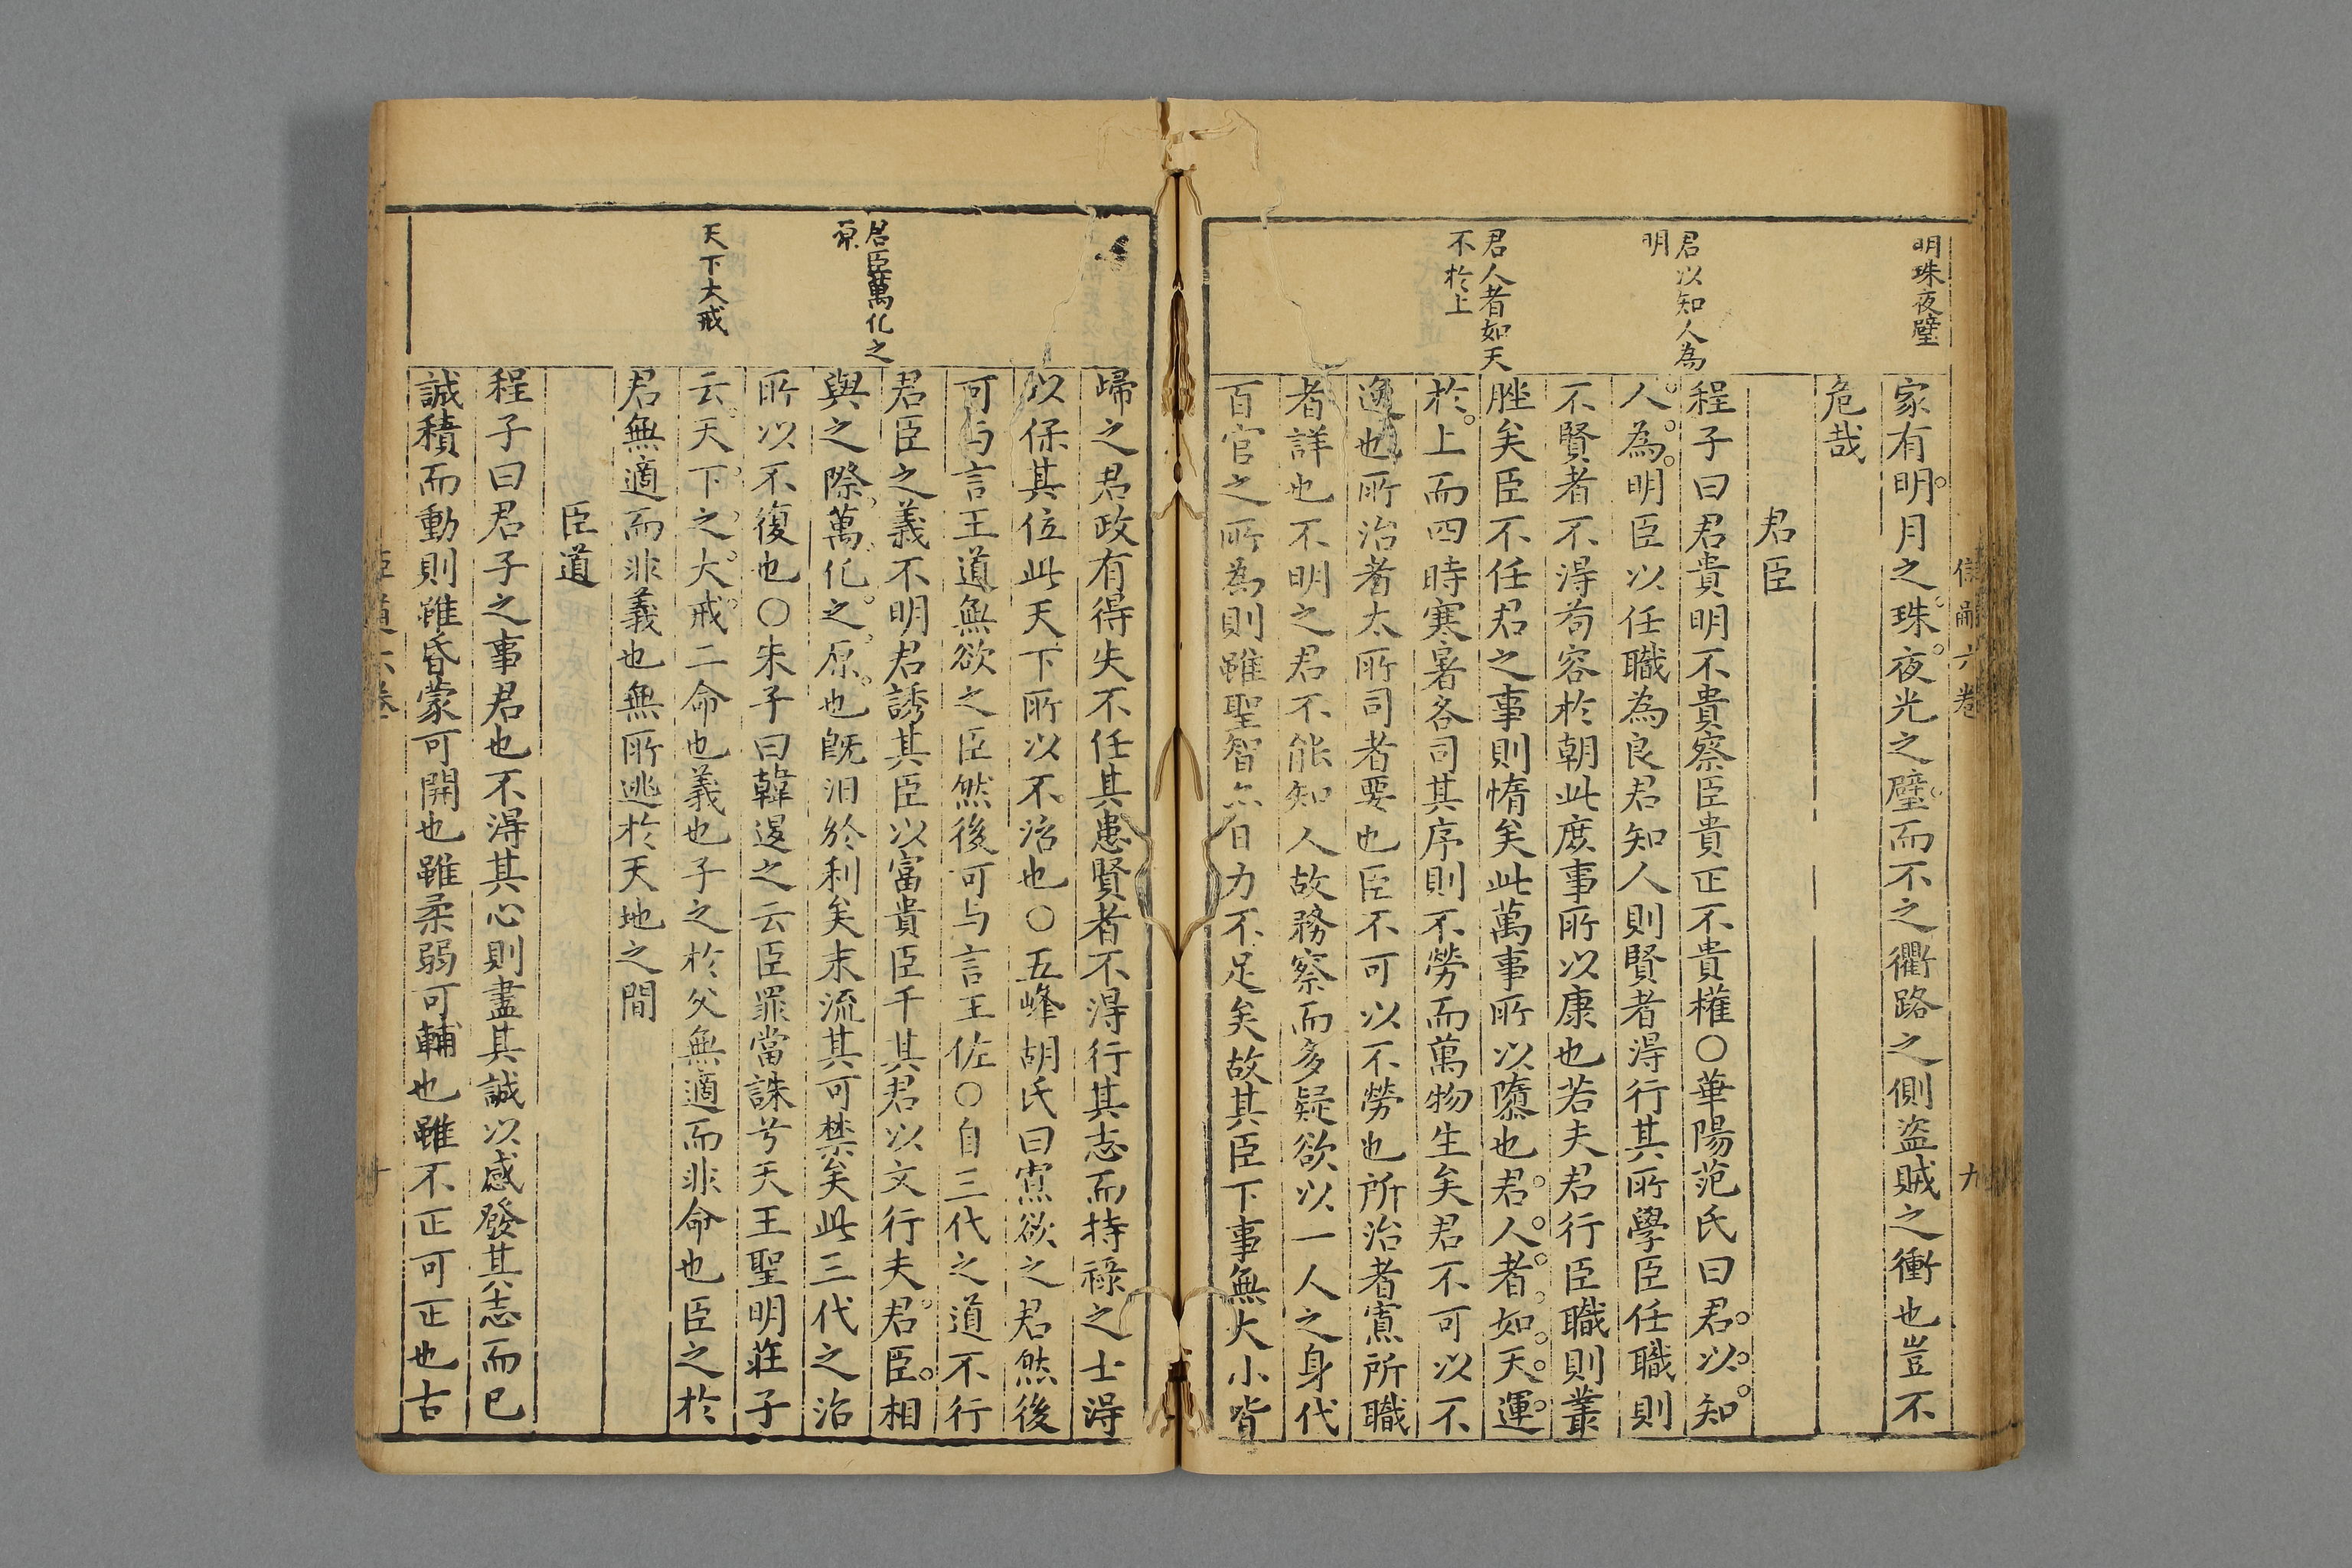 明珠夜璧
君以知人為
明
君人者如天
不於上
家有明月之珠夜光之璧而不之衢路之側盜賊之衝也豈不
危哉
君臣
程子曰君貴明不貴察臣貴正不貴權○華陽范氏曰君以知
人為明臣以任職為良君知人則賢者得行其所學臣任職則
不賢者不得苟容於朝此庶事所以康也若夫君行臣職則叢
脞矣臣不任君之事則惰矣此萬事所以隳也君人者如天運
於上而四時寒暑各司其序則不勞而萬物生矣君不可以不
逸也所治者太所司者要也臣不可以不勞也所治者寡所職
者詳也不明之君不能知人故務察而多疑欲以一人之身代
百官之所為則雖聖智亦日力不足矣故其臣下事無大小皆
君臣萬化之
原
天下大戒
歸之君政有得失不任其患賢者不得行其志而持祿之士得
以保其位此天下所以不治也○五峰胡氏曰寡欲之君然後
可与言王道無欲之臣然後可与言王佐○自三代之道不行
君臣之義不明君誘其臣以富貴臣干其君以文行夫君臣相
與之際萬化之原也既汨於利矣末流其可禁矣此三代之治
所以不復也○朱子曰韓退之云臣罪當誅兮天王聖明莊子
云天下之大戒二命也義也子之於父無適而非命也臣之於
君無適而非義也無所逃於天地之間
臣道
程子曰君子之事君也不得其心則盡其誠以感發其志而已
誠積而動則雖昏蒙可開也雖柔弱可輔也雖不正可正也古